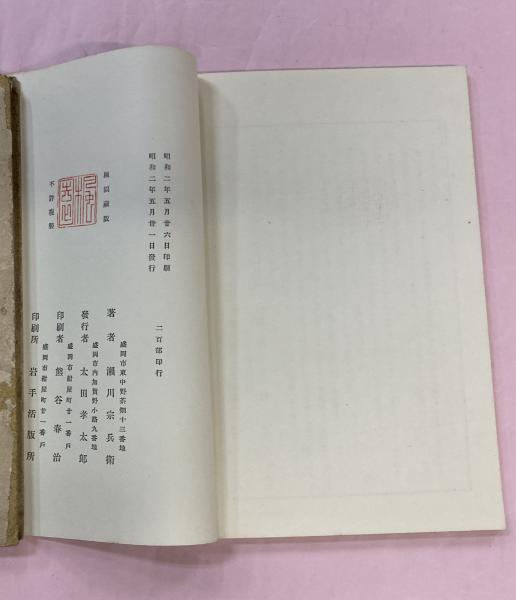 昭和二年五月廿六日印刷
昭和二年五月廿一日發行
二百部印行
楓園藏版
不許複製
盛岡市東中野茶畑十三番地
著者 瀨川宗兵衛
盛岡市內加賀野小路九番地
發行者 太田孝太郎
盛岡市紺屋町廿一番戶
印刷者 熊谷春治
盛岡市紺屋町廿一番戶
印刷所 岩手活版所